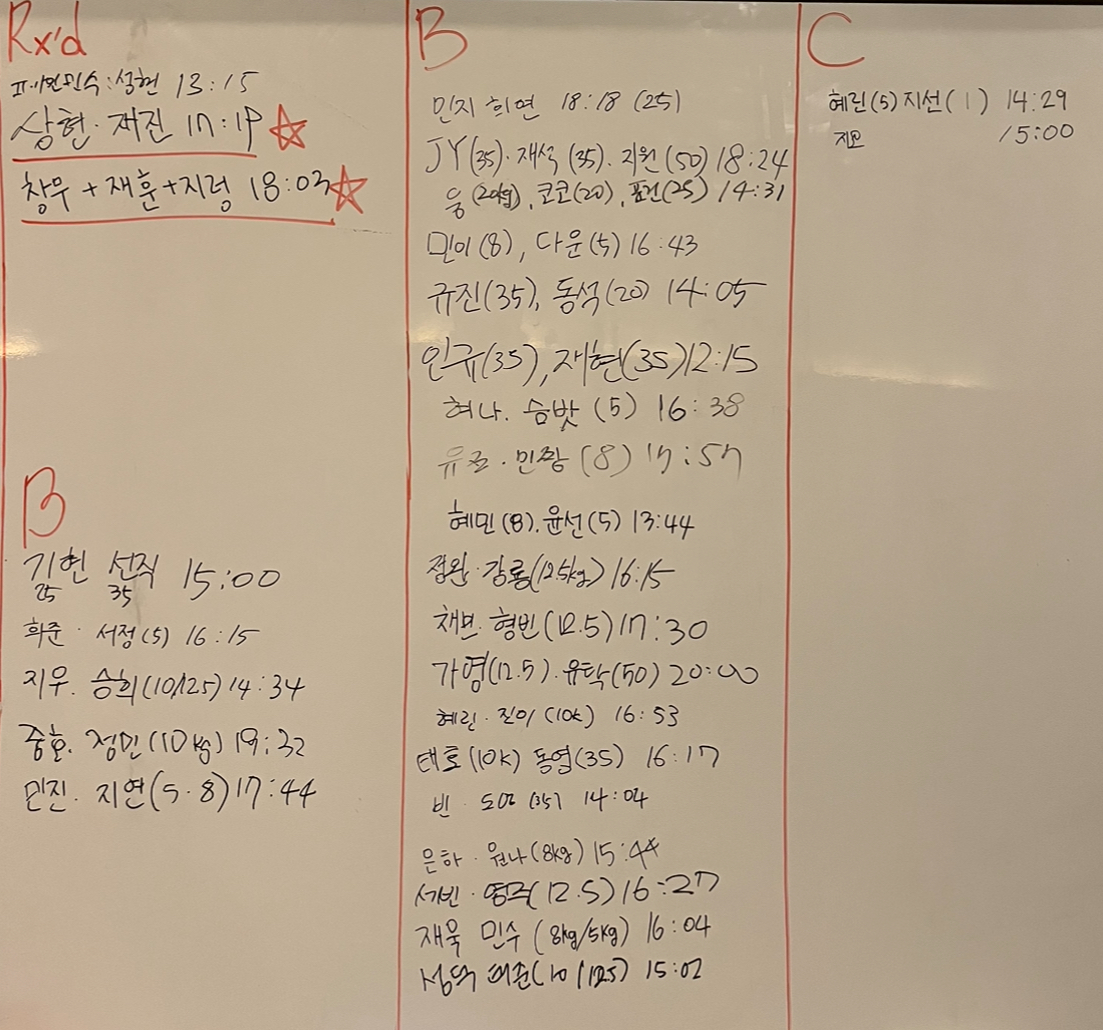 Rx'd
성현 13:15
상현·재진 17:19
창우+재훈+지정 18:03
B
기현 선직 15:00
25 35
희준·서정(5) 16:15
지우. 승희(10/12.5) 14:34
중호. 정민(10kg) 19:32
민진. 지연(5·8) 17:44
B
민지 희연 18:18 (25)
JY(35)·재석(35)·지원(50) 18:24
웅(20kg), 코코(20), 표건(25) 14:31
민이(8), 다운(5) 16:43
규진(35), 동석(20) 14:05
인규(35), 재현(35) 12:15
혀나. 슴밧(5) 16:38
민짱(8) 17:57
혜민(8). 윤선(5) 13:44
정완·강룡(12.5kg) 16:15
채번·형빈(12.5) 17:30
가영(12.5)·유탁(50) 20:00
혜린·진이(10k) 16:53
태호(10k) 동엽(35) 16:17
빈·(35) 14:04
은하·원나(8kg) 15:44
서빈·영주(12.5) 16:27
재욱 민수(8kg/5kg) 16:04
(10/12.5) 15:02
C
혜린(5)지선(1) 14:29
15:00